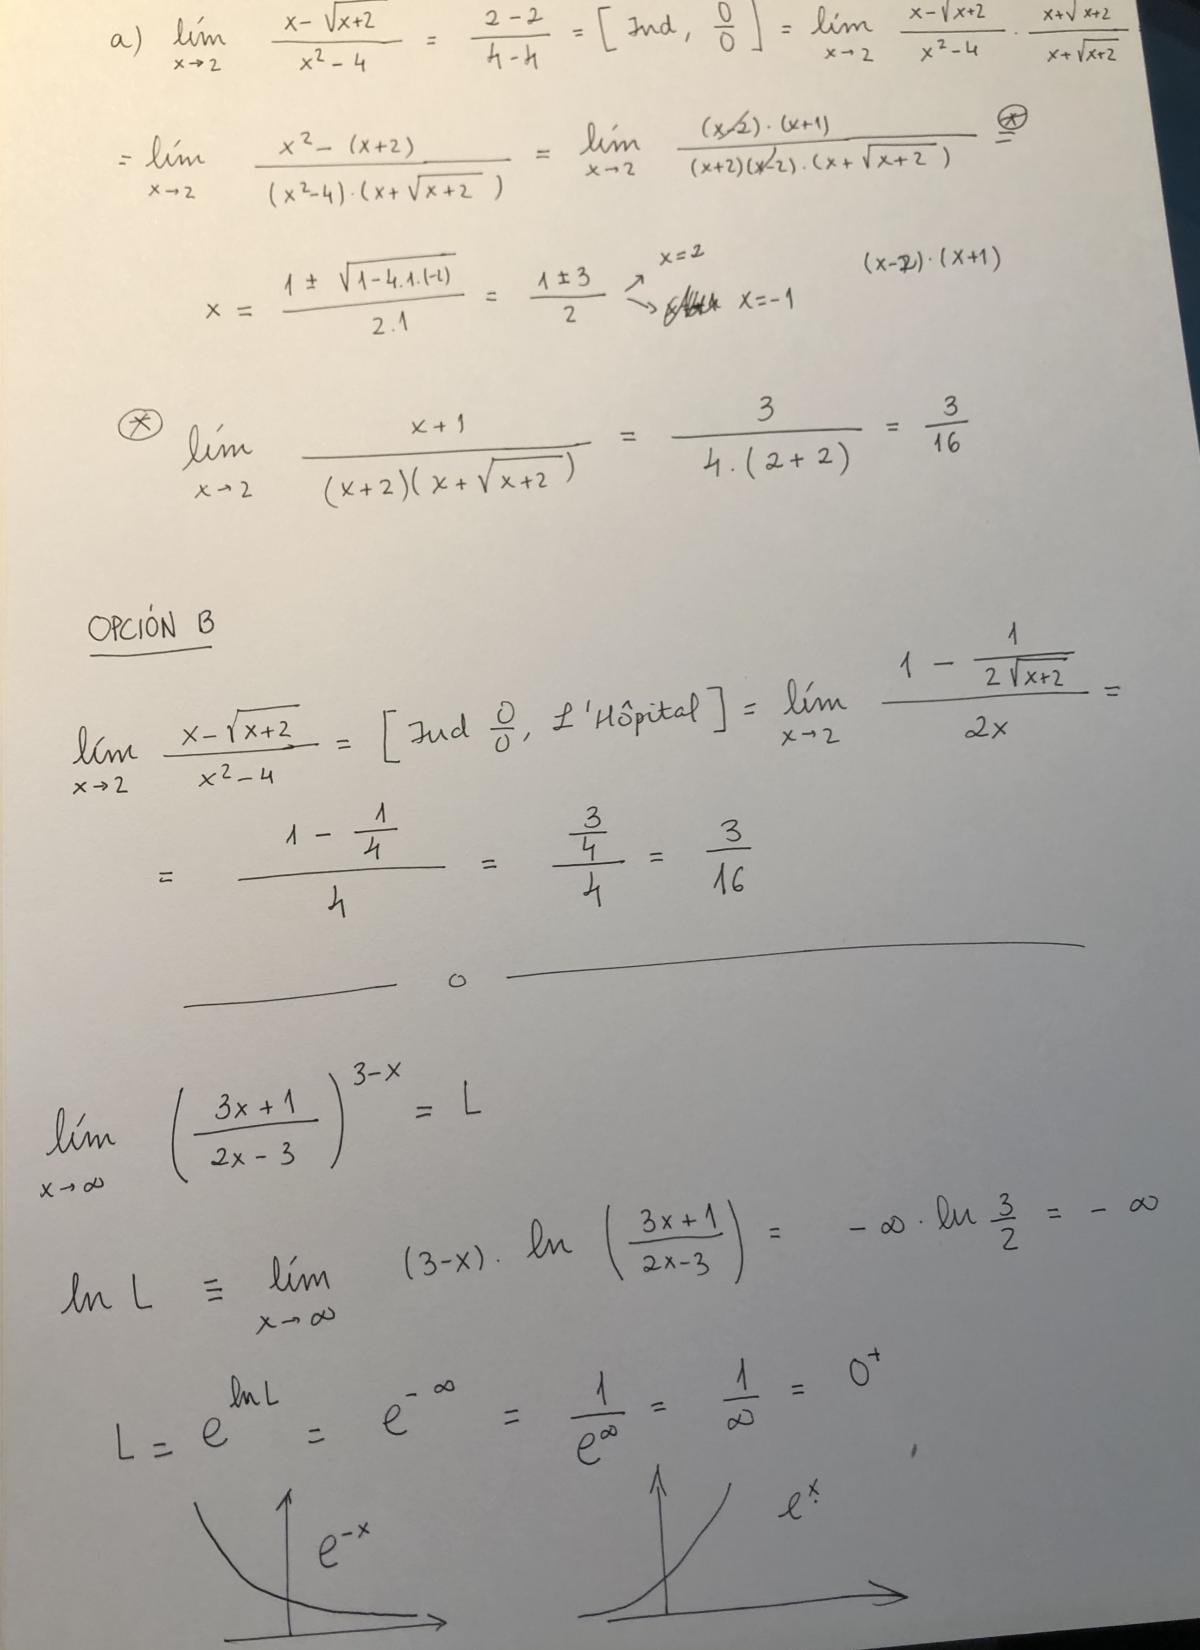 a) lím x→2 (x-√(x+2))/(x²-4) = (2-2)/(4-4) = [Ind, 0/0] = lím x→2 (x-√(x+2))/(x²-4) · (x+√(x+2))/(x+√(x+2))
= lím x→2 (x²-(x+2))/((x²-4)·(x+√(x+2))) = lím x→2 ((x-2)·(x+1))/((x+2)(x-2)·(x+√(x+2))) =*
x = (1±√(1-4.1.(-2)))/(2.1) = (1±3)/2 → x=2 → x=-1 (x-2)·(x+1)
* lím x→2 (x+1)/((x+2)(x+√(x+2))) = 3/(4.(2+2)) = 3/16
OPCIÓN B
lím x→2 (x-√(x+2))/(x²-4) = [Ind 0/0, L'Hôpital] = lím x→2 (1-1/(2√(x+2)))/(2x) =
= (1-1/4)/4 = (3/4)/4 = 3/16
lím x→∞ ((3x+1)/(2x-3))^(3-x) = L
ln L ≡ lím x→∞ (3-x). ln ((3x+1)/(2x-3)) = -∞·ln 3/2 = -∞
L = e^(ln L) = e^(-∞) = 1/e^∞ = 1/∞ = 0⁺
e^(-x) e^x